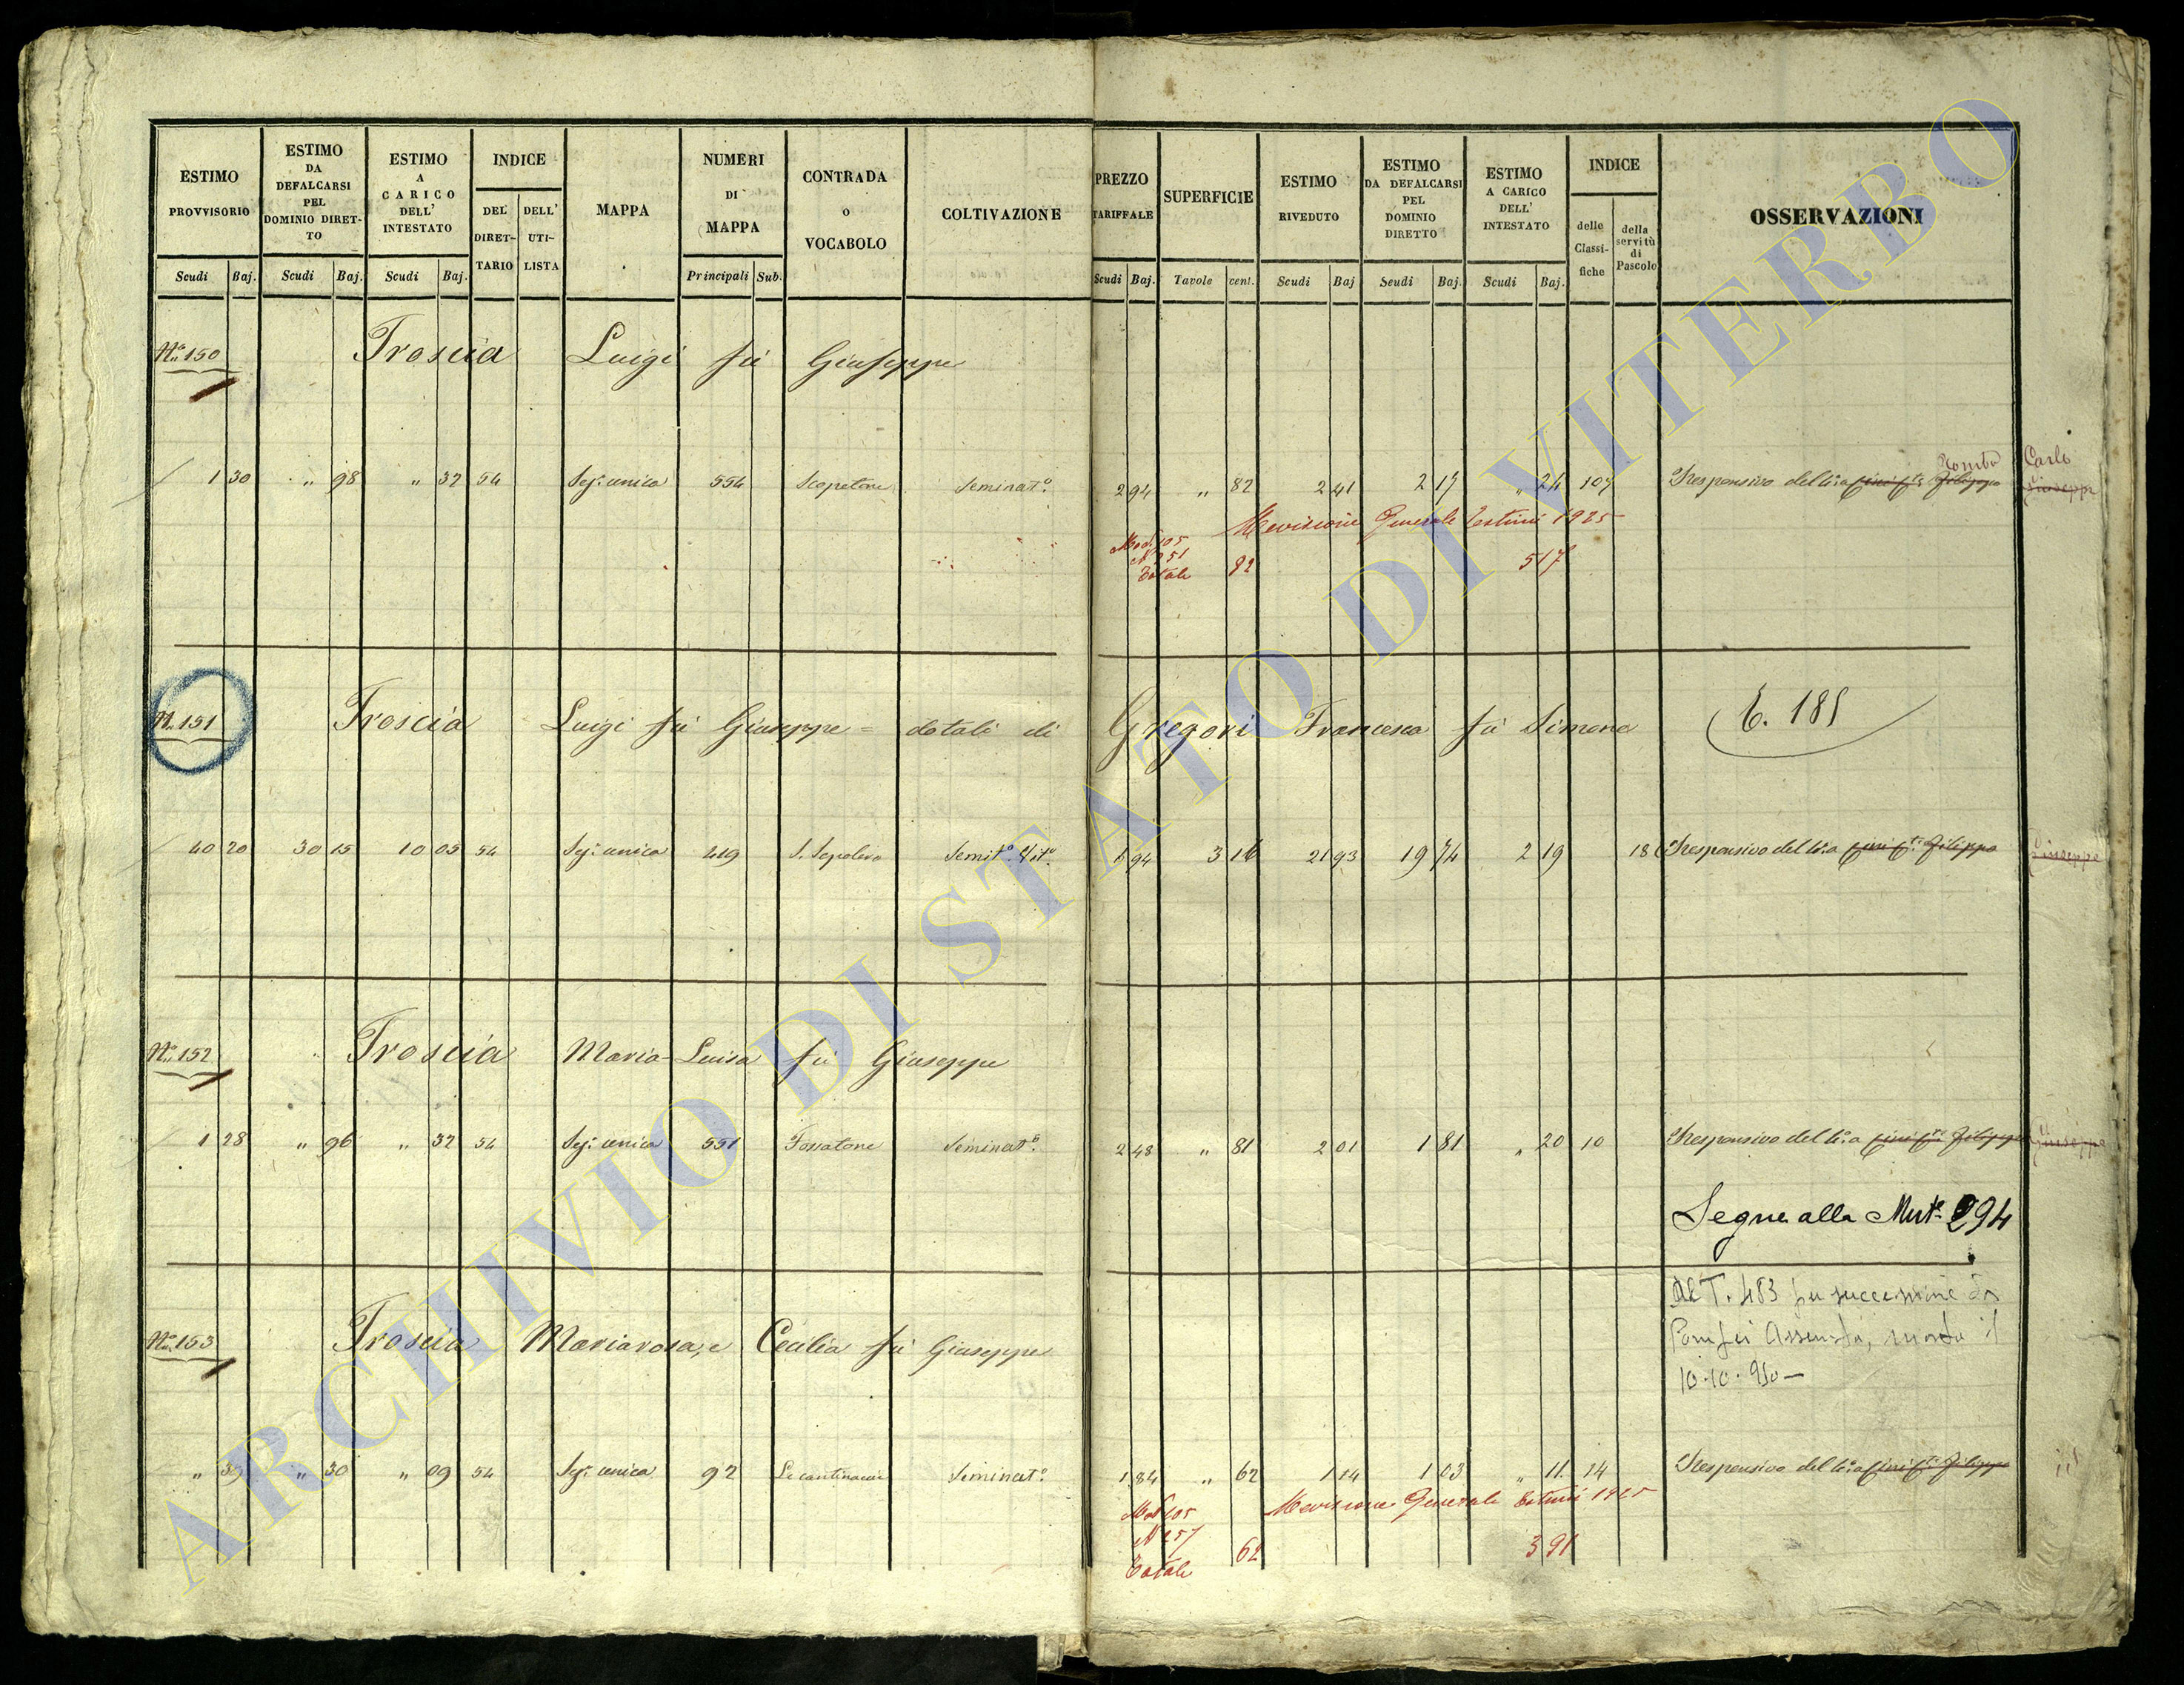 ESTIMO PROVVISORIO Scudi Baj.
ESTIMO DA DEFALCARSI PEL DOMINIO DIRET-TO Scudi Baj.
ESTIMO A CARICO DELL' INTESTATO Scudi Baj.
INDICE DEL DIRET-TARIO DELL' UTI-LISTA
MAPPA
NUMERI DI MAPPA Principali Sub.
CONTRADA O VOCABOLO
COLTIVAZIONE
PREZZO TARIFFALE Scudi Baj.
SUPERFICIE Tavole cent.
ESTIMO RIVEDUTO Scudi Baj
ESTIMO DA DEFALCARSI PEL DOMINIO DIRETTO Scudi Baj.
ESTIMO A CARICO DELL' INTESTATO Scudi Baj.
INDICE delle Classi-fiche della servitù di Pascolo
OSSERVAZIONI
N.º 150 Troscia Luigi fù Giuseppe
Carlo
1 30 " 98 " 32 54 Sez.e unica 554 Scopetone Seminat.º 2 94 " 82 2 41 2 17 " 24 107 Responsivo del 4.º a Filippo Giuseppe
Revisione Generale Estimi 1925
Mod. 105
N 251
Totale 82 517
N. 151 Troscia Luigi fù Giuseppe = dotali di Gregori Francesca fù Simone
40 20 30 15 10 05 54 Sez.e unica 419 S. Sepolcro Semit.º Vit.º 94 3 21 93 19 74 2 19 18 Responsivo del 4.º a Filippo Giuseppe
N.º 152 Troscia Maria Luisa fù Giuseppe
1 28 " 96 " 32 54 Sez.e unica 551 Fossatone Seminat.º 2 48 " 81 2 01 1 81 " 20 10 Responsivo del 4.º a Filippo Giuseppe
Segue alla Mut.e 294
Al T. 483 per successione di
Assunta, morta il
10.10.950 —
N.º 153 Troscia Mariarosa, e Cecilia fù Giuseppe
" 39 " 30 " 09 54 Sez.e unica 92 Seminat.º 1 84 " 62 1 14 1 03 " 11 14 Responsivo del 4.º a Filippo
Revisione Generale Estimi 1925
Mod 105
N 257
Totale 62 3 91
ARCHIVIO DI STATO DI VITERBO